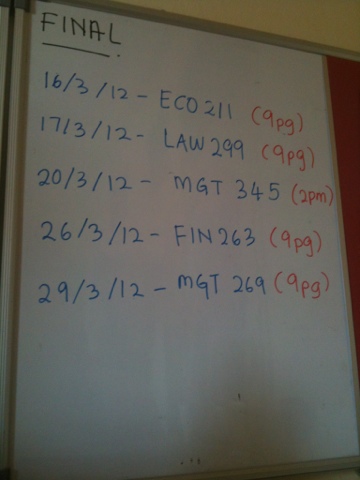 FINAL
16/3/12 - ECO 211 (9pg)
17/3/12 - LAW 299 (9pg)
20/3/12 - MGT 345 (2pm)
26/3/12 - FIN 263 (9pg)
29/3/12 - MGT 269 (9pg)